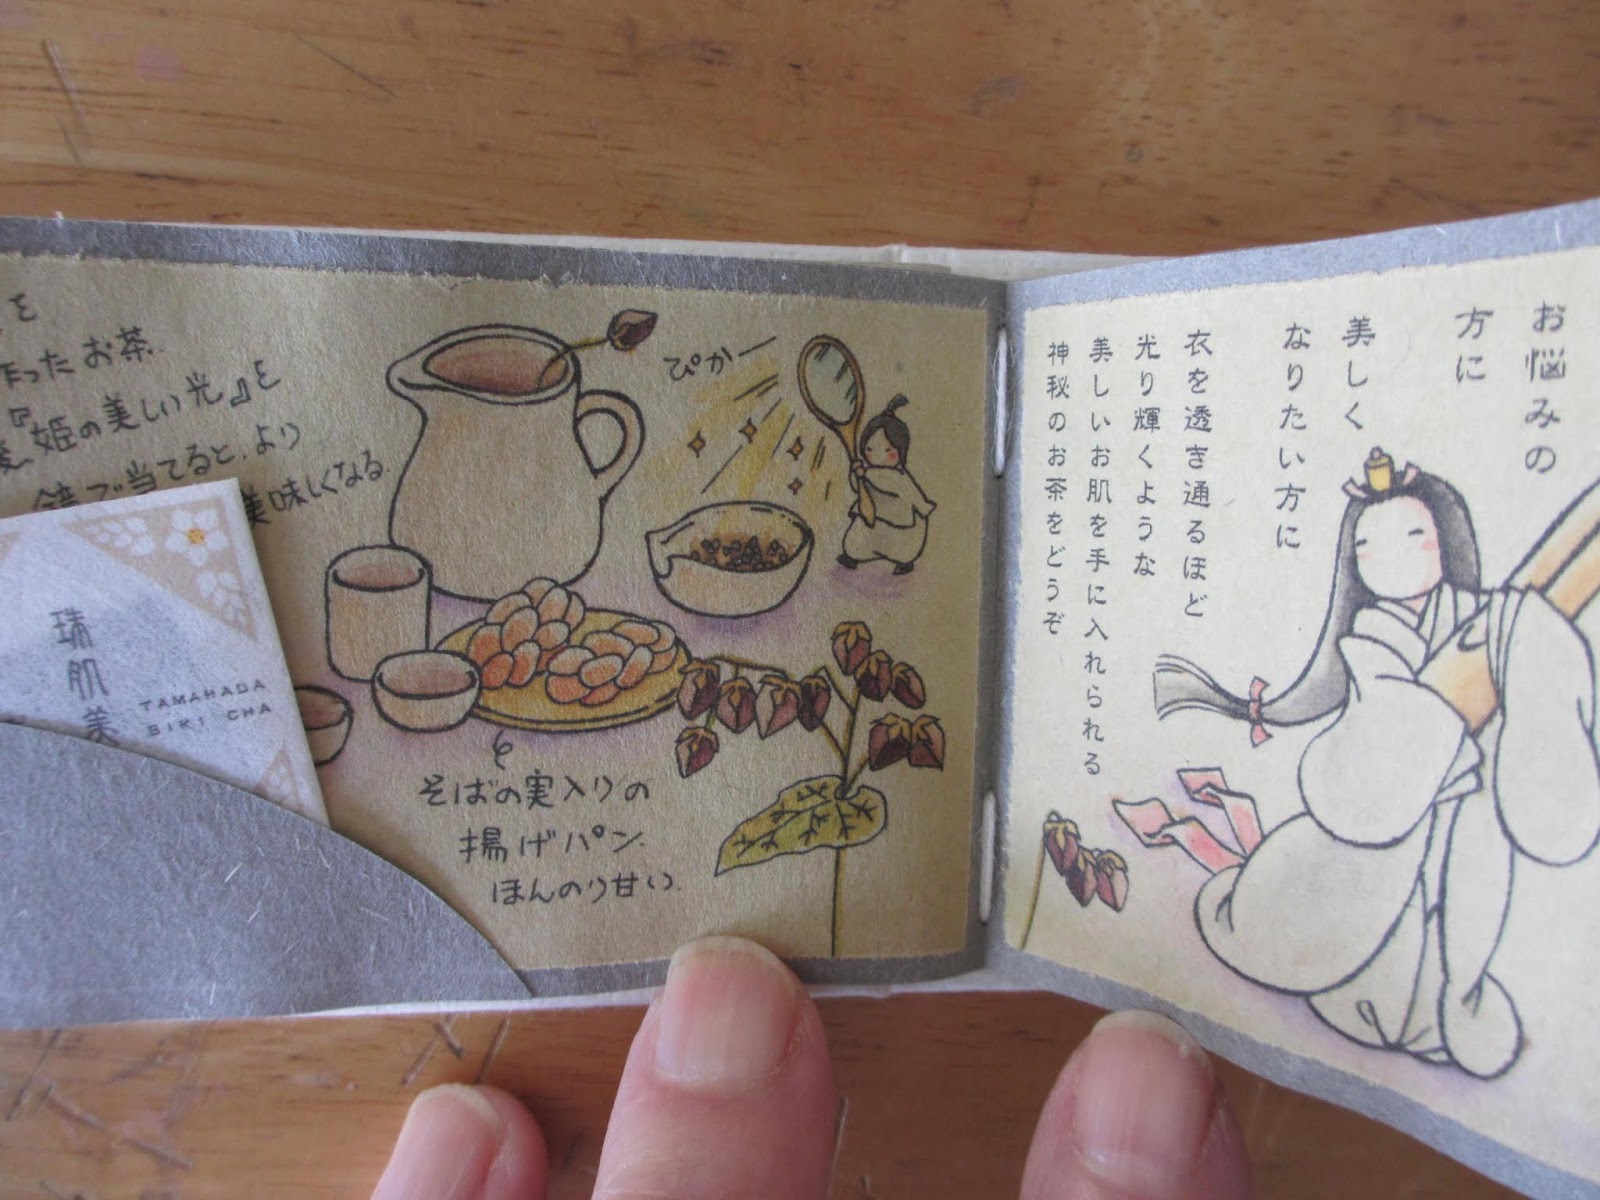 を
作ったお茶.
『姫の美しい光』を
鏡で当てると、より
美味しくなる.
ぴかー
瑞肌美
TAMAHADA
BIKI CHA
そばの実入りの
揚げパン.
ほんのり甘い.
お悩みの
方に
美しく
なりたい方に
衣を透き通るほど
光り輝くような
美しいお肌を手に入れられる
神秘のお茶をどうぞ